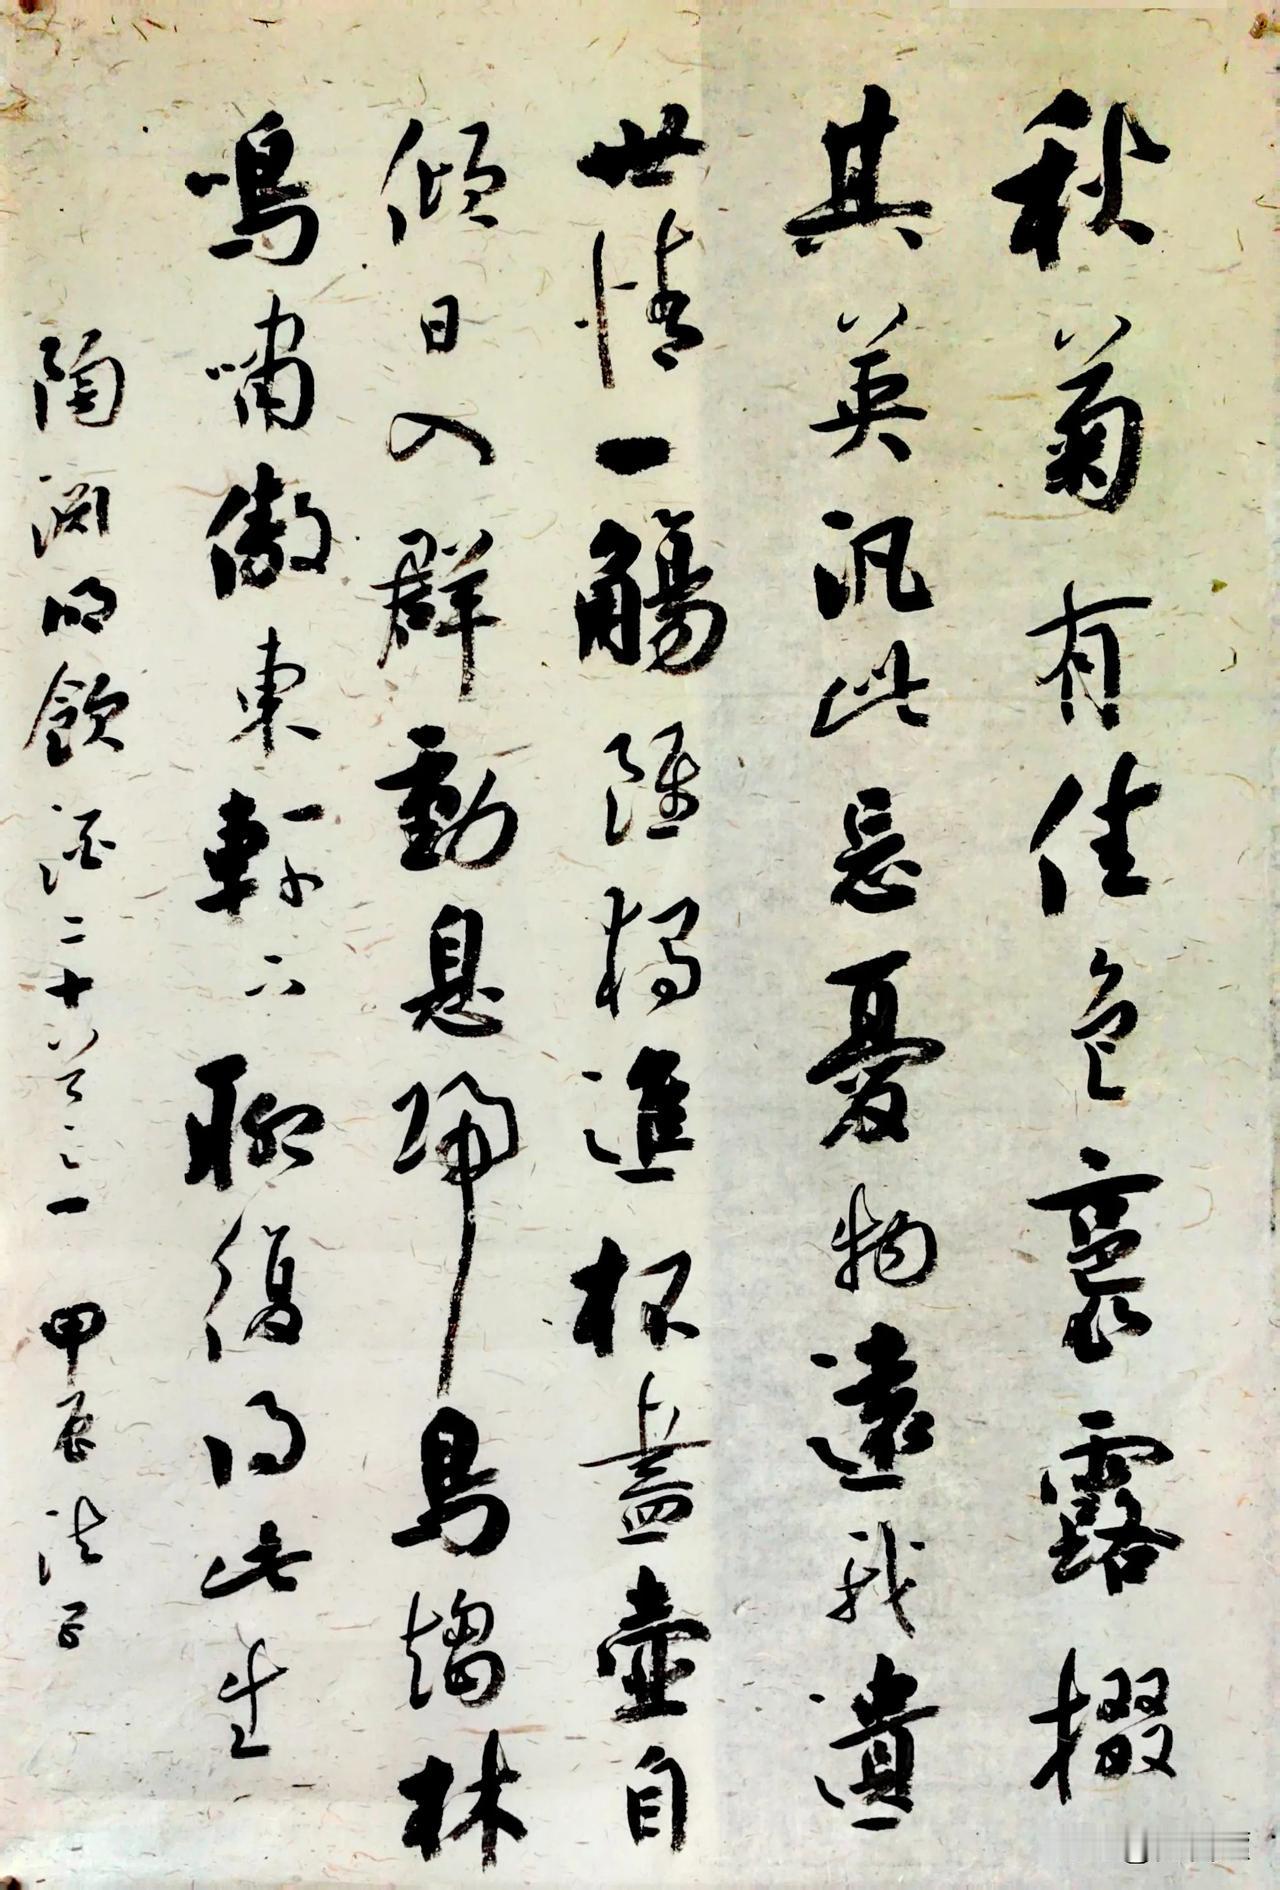 秋菊有佳色裛露掇
其英汎此忘憂物遠我遺
世情一觴雖獨進杯盡壺自
傾日入群動息歸鳥趨林
鳴嘯傲東軒下聊復得此生
陶淵明飲酒二十首之一 甲辰